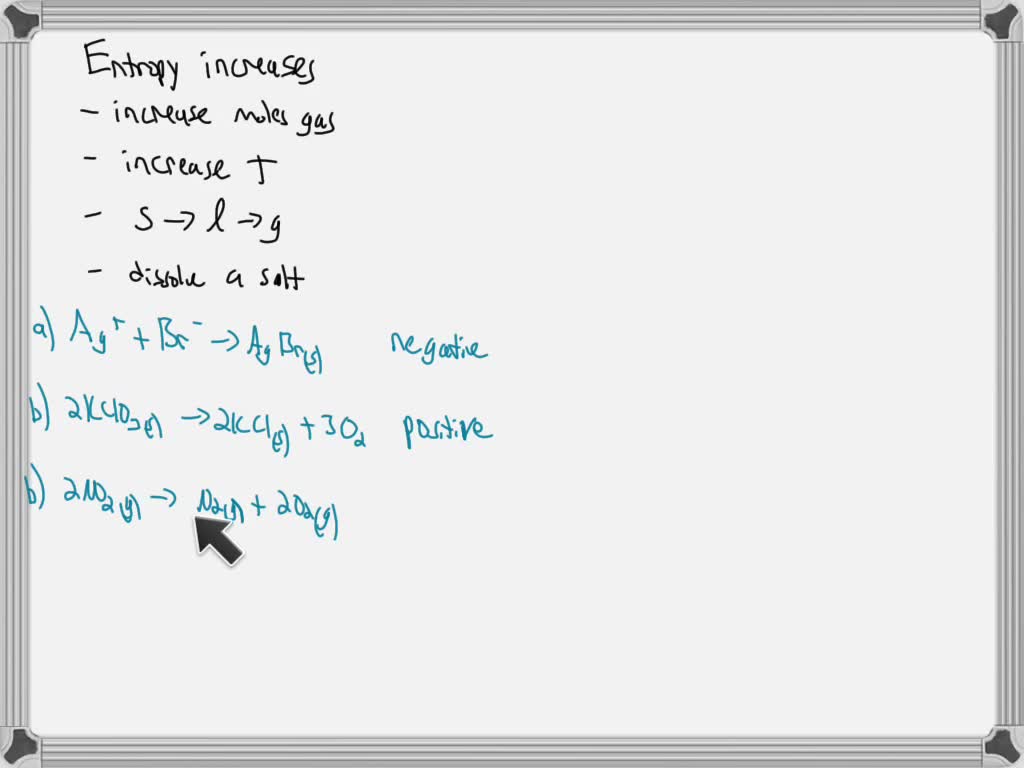 Entropy increases
- increase moles gas
- increase T
- s → l → g
- dissolve a salt
a) Ag⁺ + Br⁻ → AgBr(s) negative
b) 2KClO₃(s) → 2KCl(s) + 3O₂ positive
b) 2NO₂(g) → N₂(g) + 2O₂(g)